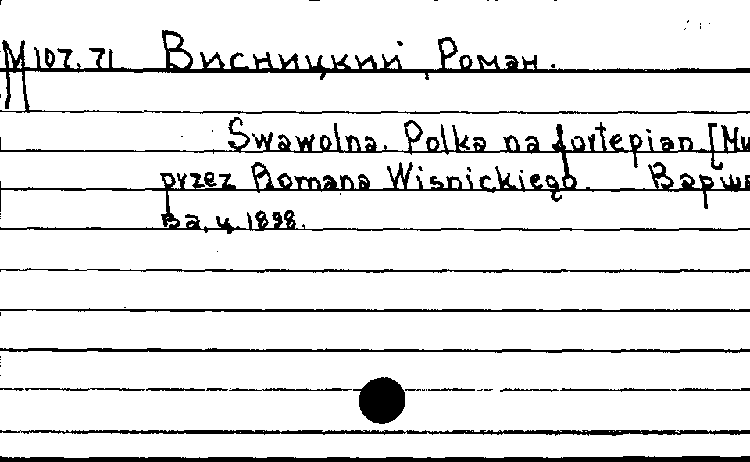 М 107.71. Висницкий, Роман.
Swawolna. Polka na fortepian [Mu
przez Romana Wisnickiego. Варша
ва, ц. 1898.